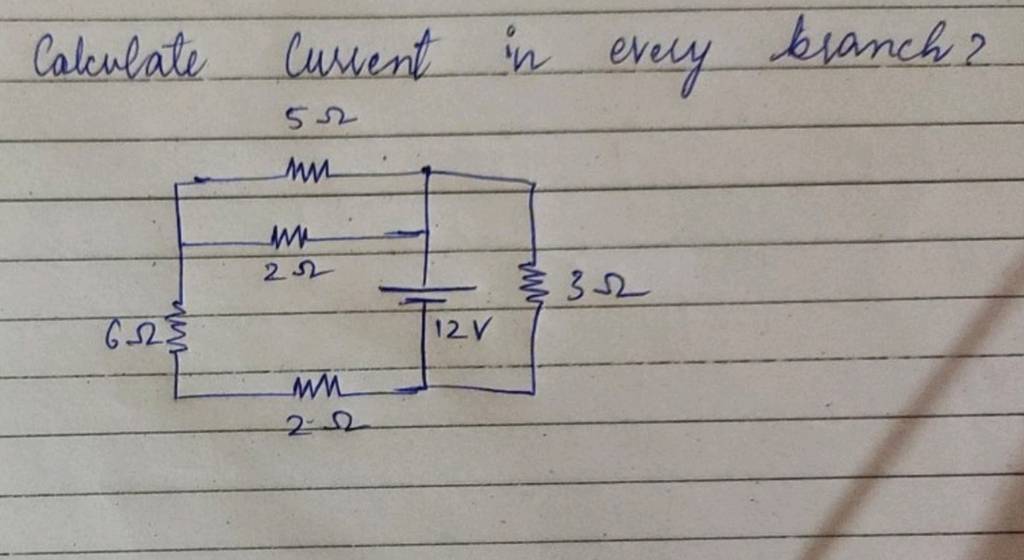 Calculate Current in every branch?
5 Ω
2 Ω
6 Ω
12 V
3 Ω
2 Ω